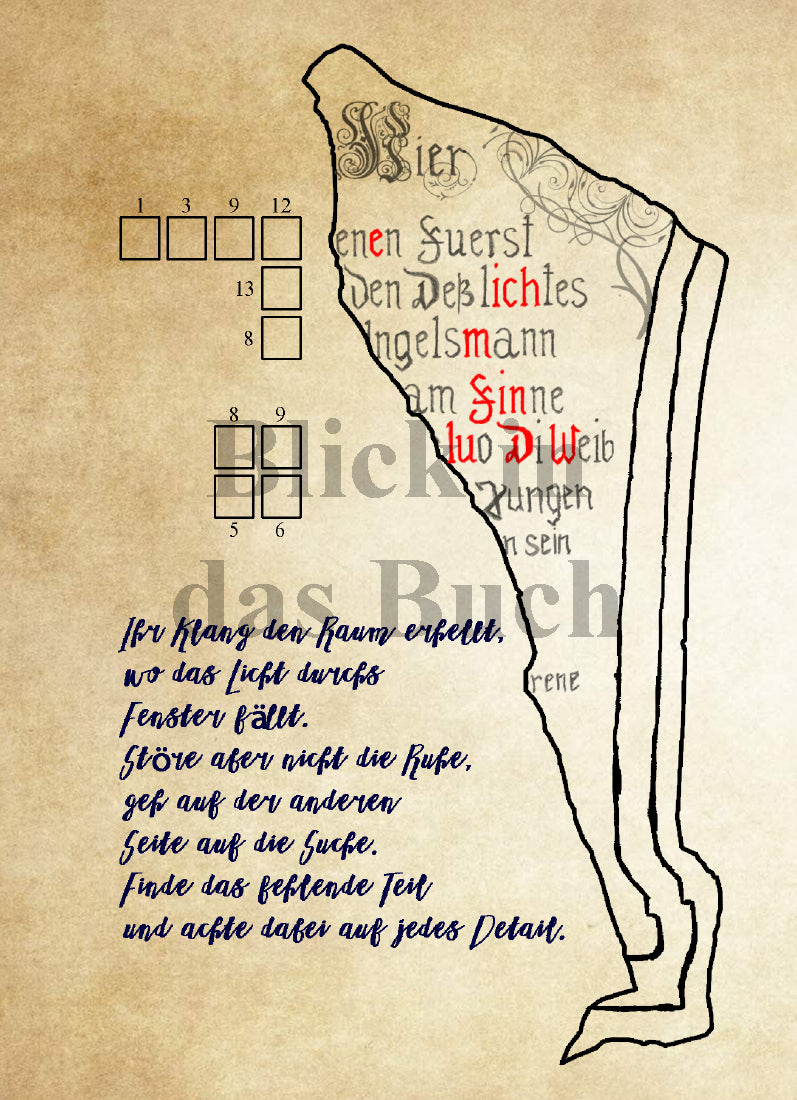 Hier
enen Fuerst
Den Deß lichtes
Ingelsmann
am Finne
luo Di Weib
Jungen
n sein
rene
1 3 9 12
13
8
8 9
5 6
Blick in
das Buch
Ihr Klang den Raum erhellt,
wo das Licht durchs
Fenster fällt.
Störe aber nicht die Ruhe,
geh auf der anderen
Seite auf die Suche.
Finde das fehlende Teil
und achte dabei auf jedes Detail.